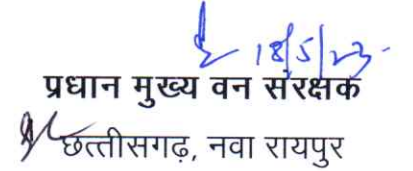 18/5/23
प्रधान मुख्य वन संरक्षक
छत्तीसगढ़, नवा रायपुर